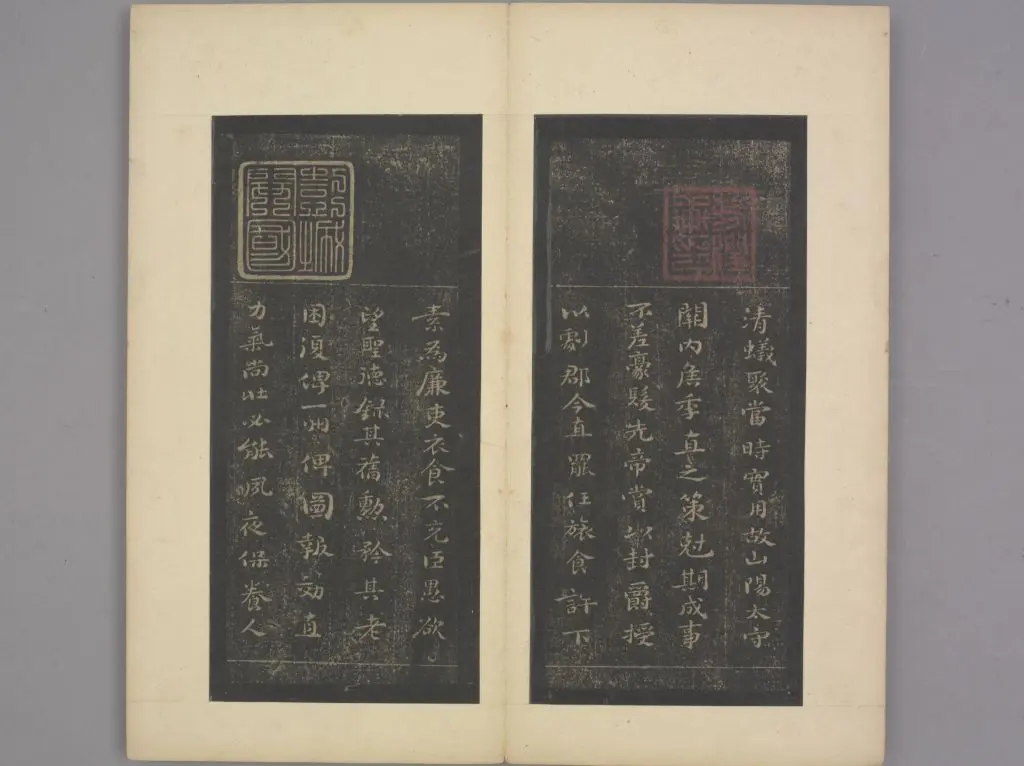 清蟻聚當時實用故山陽太守
關內侯季直之策尅期成事
不差豪髮先帝賞以封爵授
以劇郡今直罷任旅食許下
素為廉吏衣食不充臣愚欲
望聖德錄其舊勳矜其老
困復俾一州俾圖報効直
力氣尚壯必能夙夜保養人
彭城開國